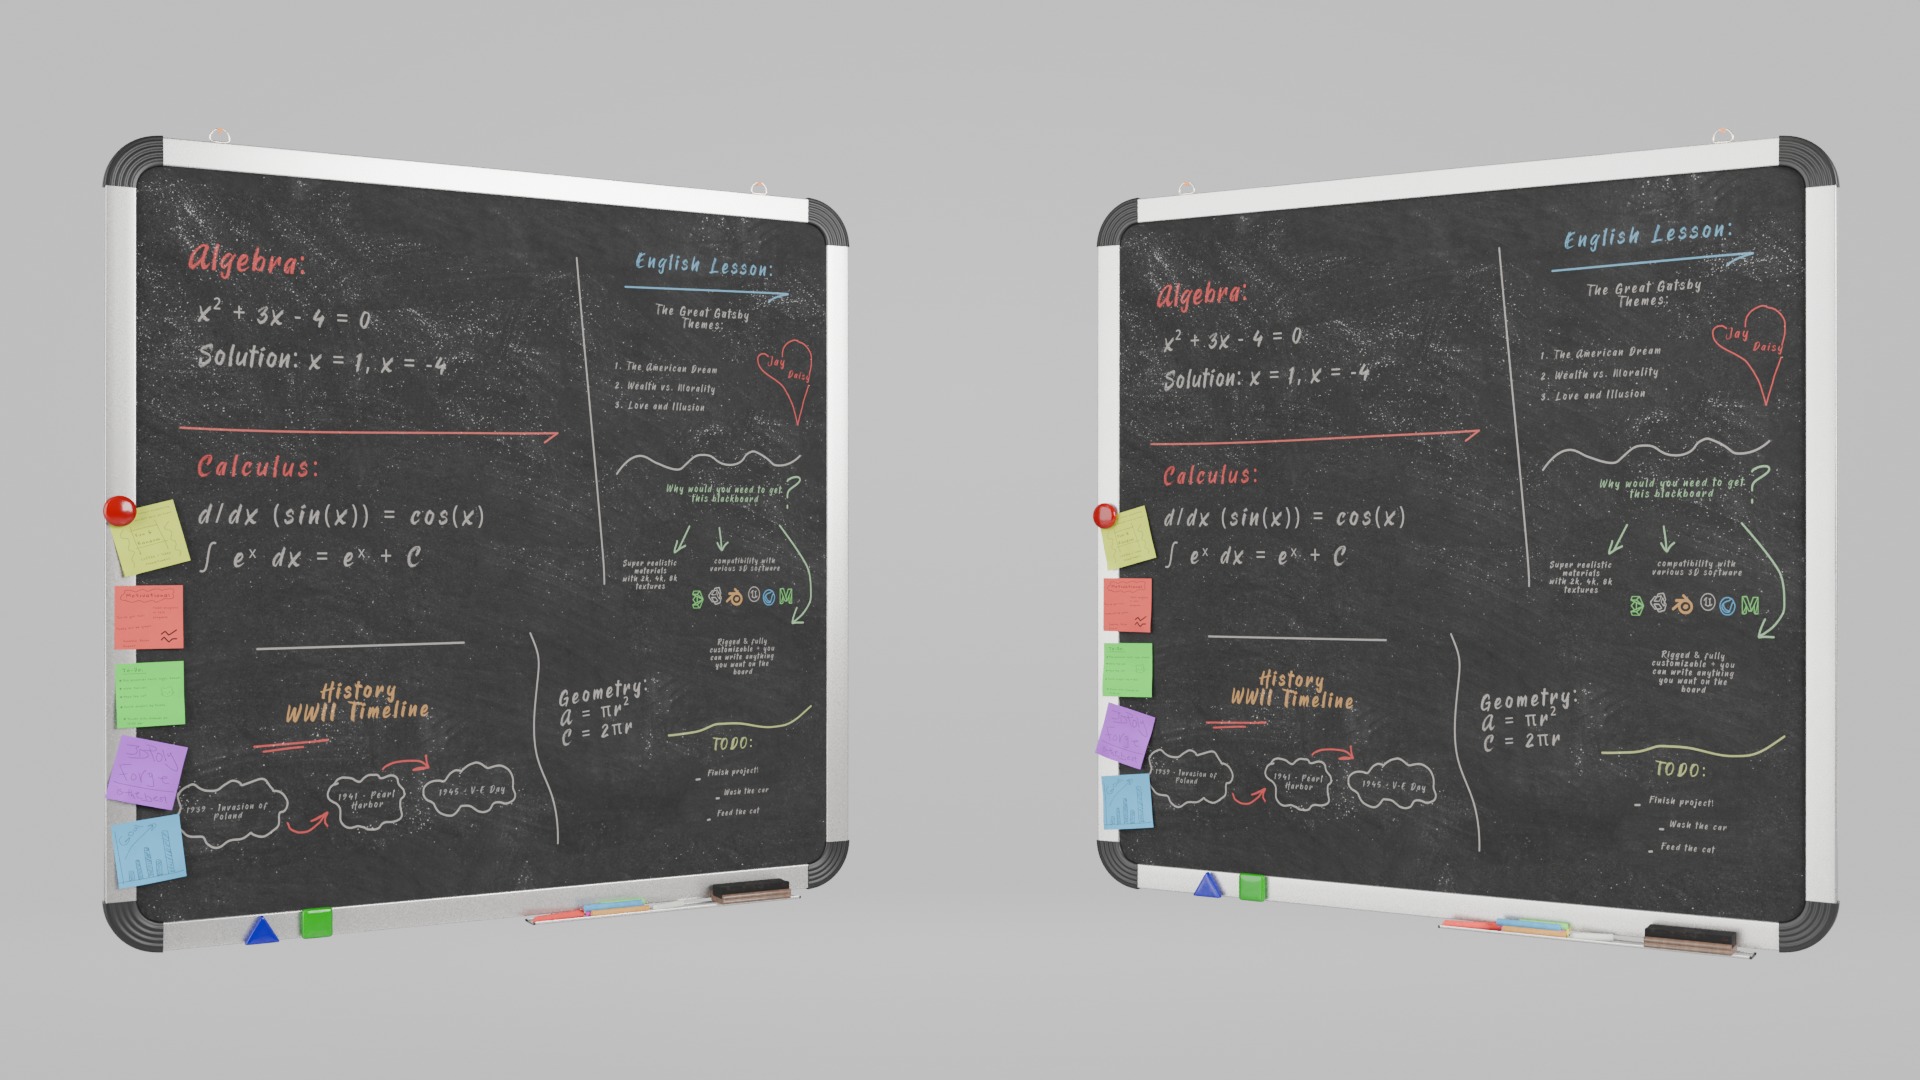 Algebra:
x² + 3x - 4 = 0
Solution: x = 1, x = -4
Calculus:
d/dx (sin(x)) = cos(x)
∫ eˣ dx = eˣ + C
History
WWII Timeline
1939 - Invasion of
Poland
1941 - Pearl
Harbor
1945 - V-E Day
Geometry:
a = πr²
C = 2πr
English Lesson:
The Great Gatsby
Themes:
1. The American Dream
2. Wealth vs. Morality
3. Love and Illusion
Jay
Daisy
Why would you need to get
this blackboard
?
Super realistic
materials
with 2k, 4k, 8k
textures
compatibility with
various 3D software
Rigged & fully
customizable - you
can write anything
you want on the
board
TODO:
- Finish project!
- Wash the car
- Feed the cat
Motivational
To-do:
forge
Algebra:
x² + 3x - 4 = 0
Solution: x = 1, x = -4
Calculus:
d/dx (sin(x)) = cos(x)
∫ eˣ dx = eˣ + C
History
WWII Timeline
1939 - Invasion of
Poland
1941 - Pearl
Harbor
1945 - V-E Day
Geometry:
a = πr²
C = 2πr
English Lesson:
The Great Gatsby
Themes:
1. The American Dream
2. Wealth vs. Morality
3. Love and Illusion
Jay
Daisy
Why would you need to get
this blackboard
?
Super realistic
materials
with 2k, 4k, 8k
textures
compatibility with
various 3D software
Rigged & fully
customizable - you
can write anything
you want on the
board
TODO:
- Finish project!
- Wash the car
- Feed the cat
forge